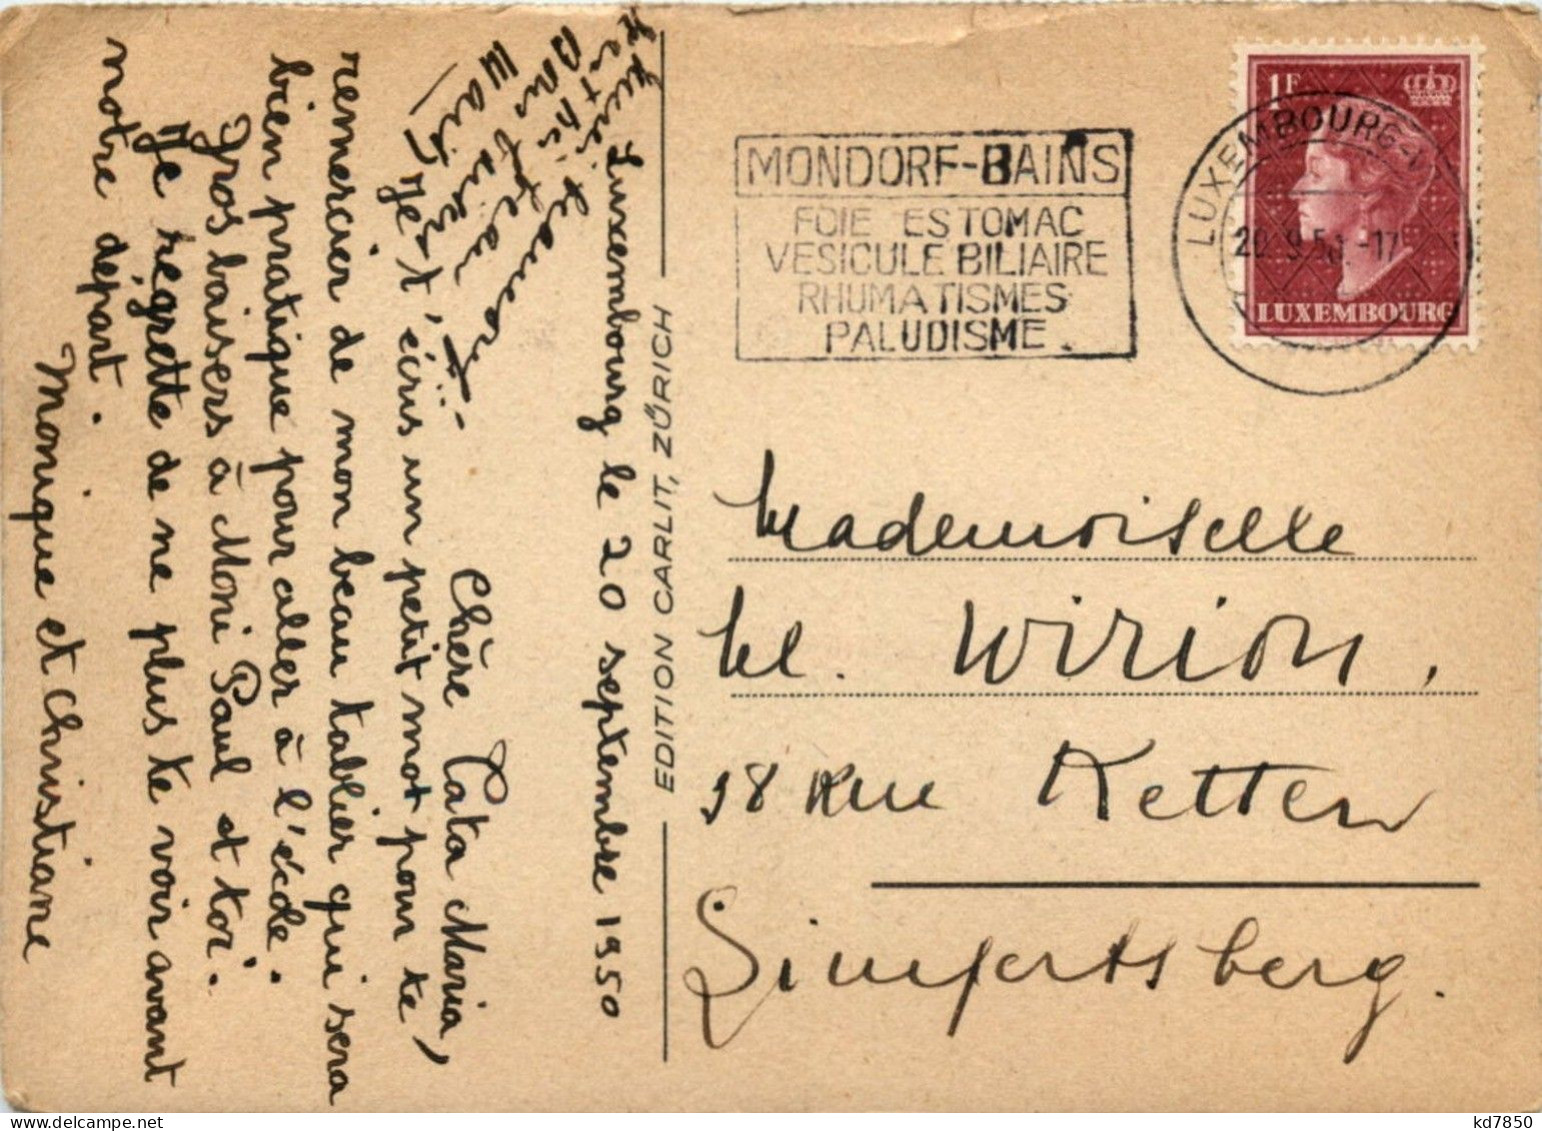 Luxembourg le 20 septembre 1950
Chère Tata Maria,
Je t'écris un petit mot pour te
remercier de mon beau tablier qui sera
bien pratique pour aller à l'école.
Gros baisers à Moni Paul et toi.
Je régrette de ne plus te voir avant
notre départ.
Monique et Christiane
EDITION CARLIT, ZÜRICH
MONDORF-BAINS
FOIE ESTOMAC
VESICULE BILIAIRE
RHUMATISMES
PALUDISME
1F
LUXEMBOURG
LUXEMBOURG
Mademoiselle
M. Wirion,
18 Rue Ketten
Limpertsberg.
kd7850